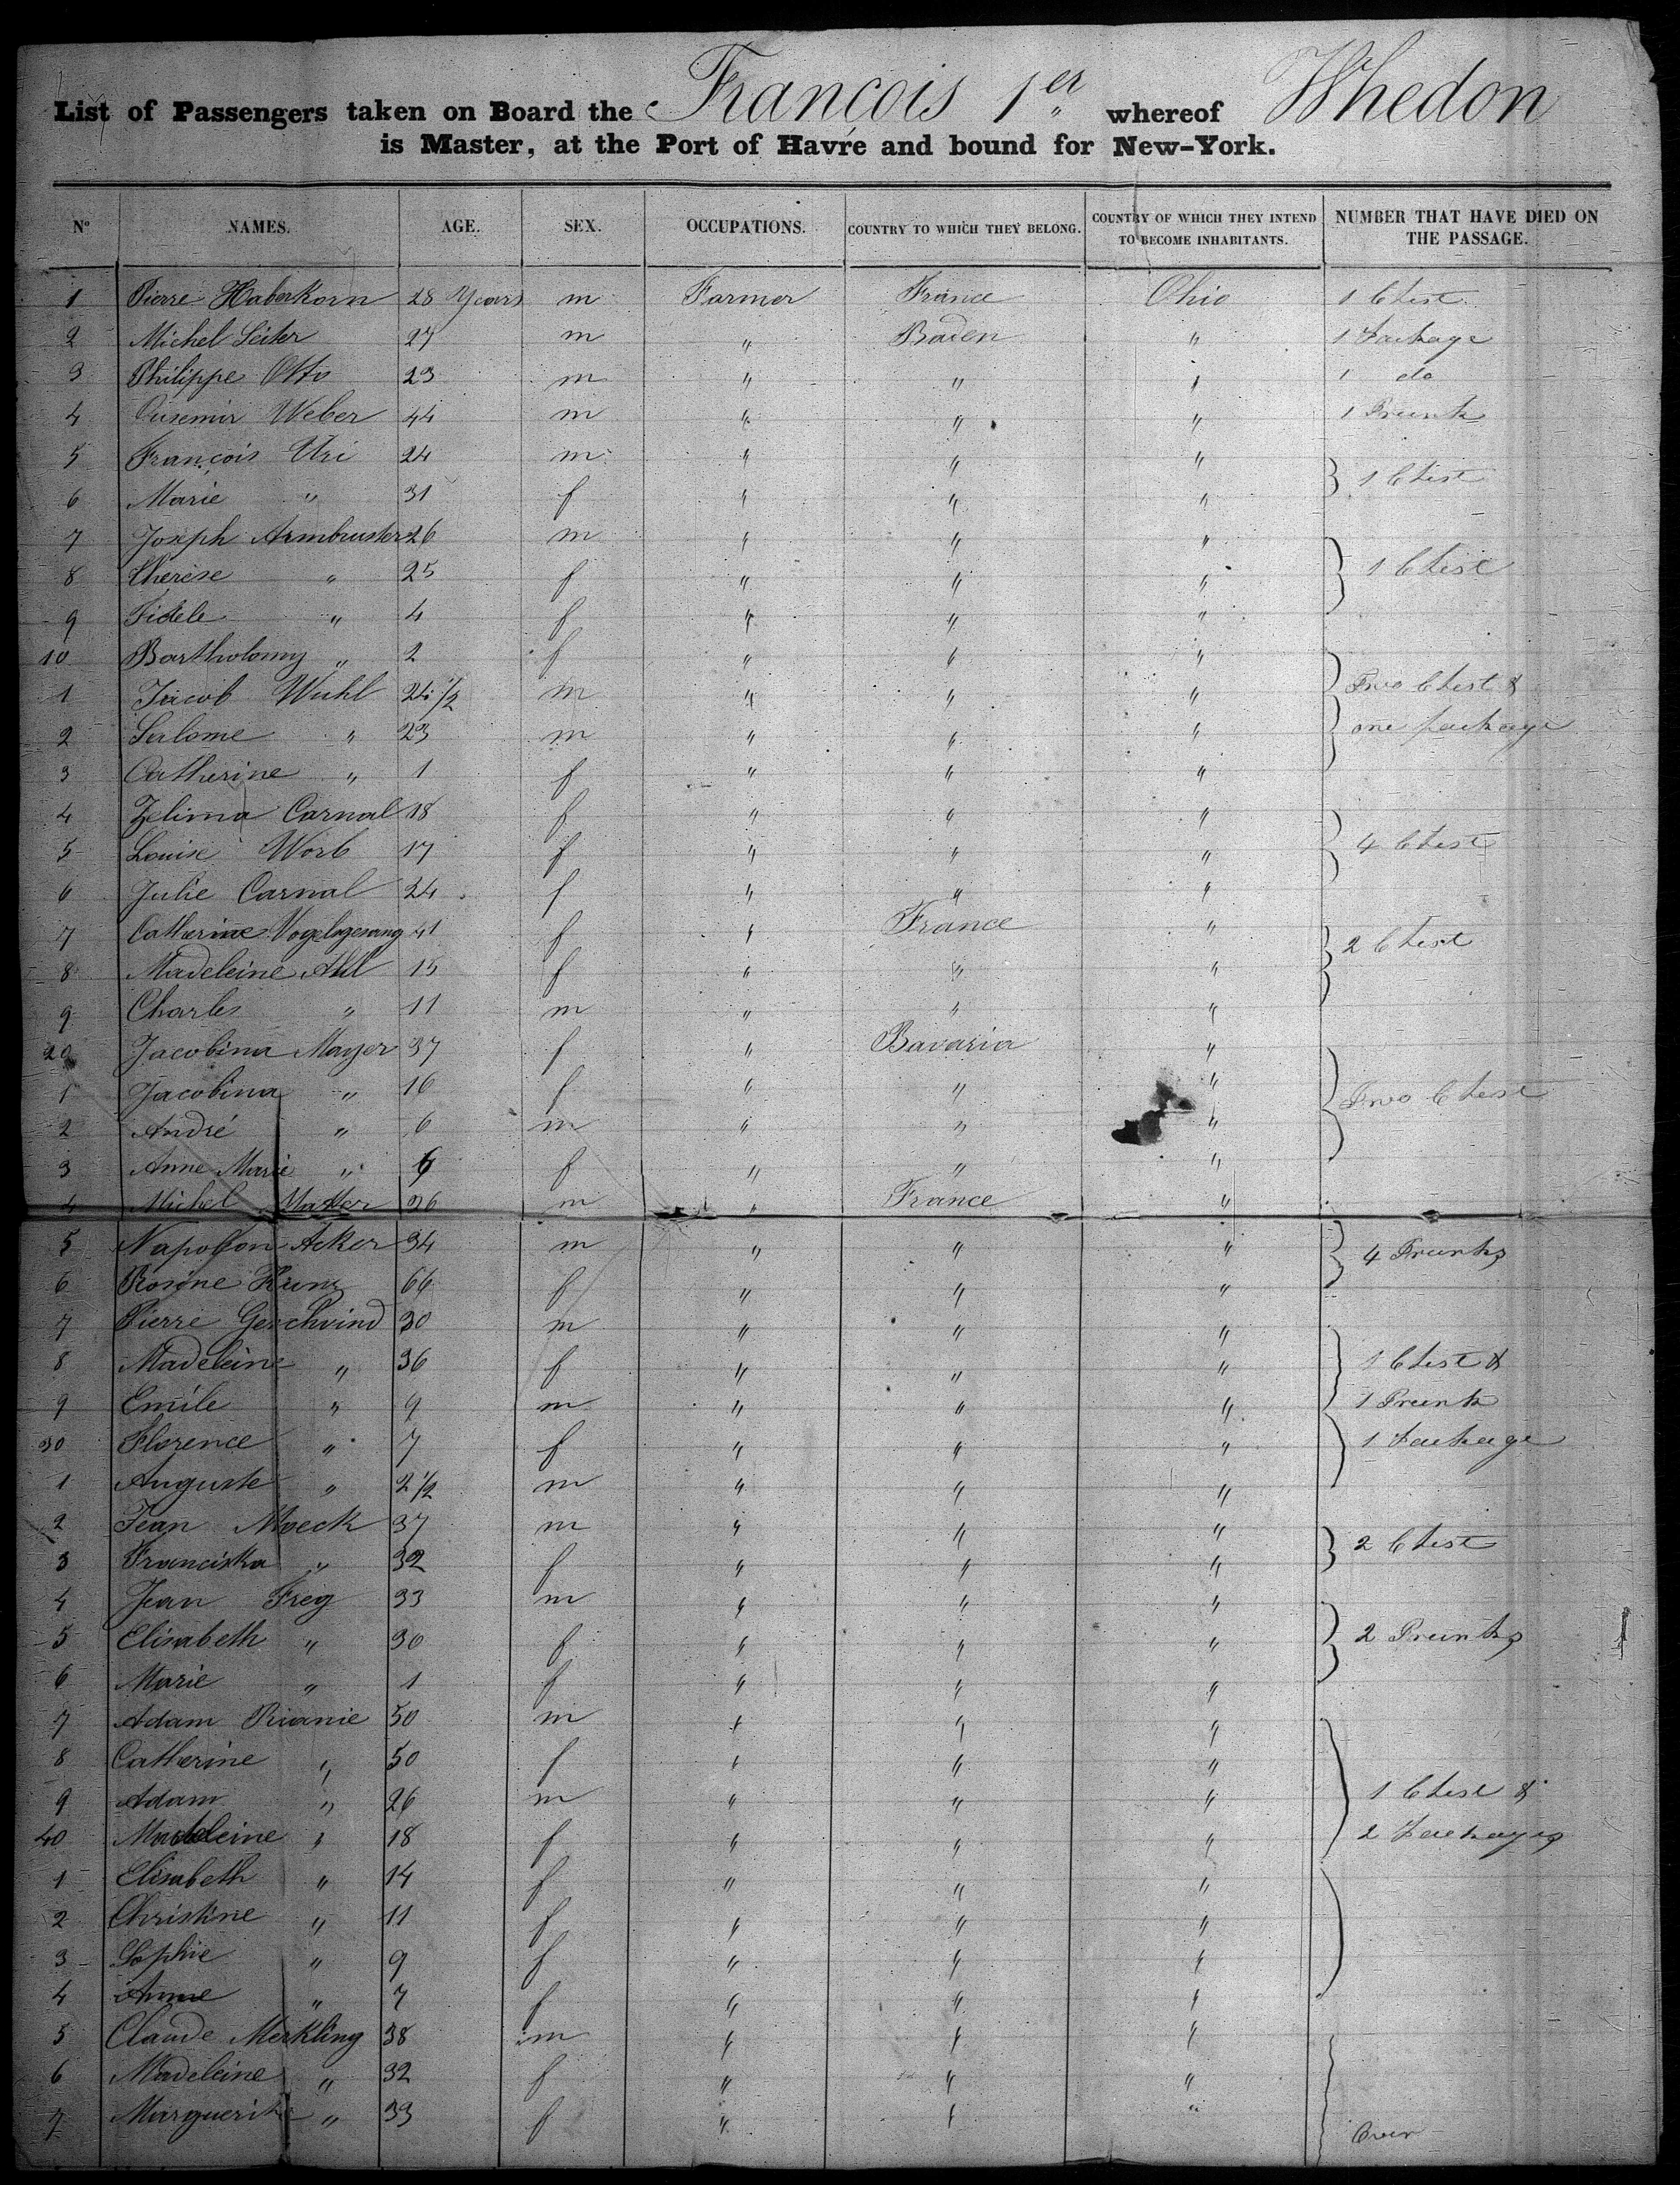 List of Passengers taken on Board the François 1er whereof Whedon
is Master, at the Port of Havre and bound for New-York.
No NAMES. AGE. SEX. OCCUPATIONS. COUNTRY TO WHICH THEY BELONG. COUNTRY OF WHICH THEY INTEND TO BECOME INHABITANTS. NUMBER THAT HAVE DIED ON THE PASSAGE.
1 Pierre Haberkorn 28 Years m Farmer France Ohio 1 Chest
2 Michel Seiter 27 m " Baden " 1 Package
3 Philippe Otto 23 m " " " 1 do
4 Weber 44 m " " " 1 Trunk
5 François Uri 24 m " " "
6 Marie " 31 f " " " 1 Chest
7 Joseph Armbruster 26 m " " "
8 Therese " 25 f " " " 1 Chest
9 Fidele " 4 f " " "
10 Bartholomy " 2 f " " "
1 Jacob Wuhl 24 1/2 m " " " Two Chest &
2 " 23 m " " " one package
3 Catherine " 1 f " " "
4 Zelima Carnal 18 f " " "
5 Louise Worb 17 f " " " 4 Chest
6 Julie Carnal 24 f " " "
7 Catherine Vogelsgesang 41 f " France " 2 Chest
8 Madeleine 15 f " " "
9 Charles " 11 m " " "
20 Jacobina Mayer 37 f " Bavaria "
1 Jacobina " 16 f " " " Two Chest
2 André " 6 m " " "
3 Anne Marie " f " " "
4 Michel 26 m " France "
5 Napoleon Acker 34 m " " " 4 Trunks
6 Rosine Kunz 66 f " " "
7 Pierre Geschwind 30 m " " "
8 Madeleine " 36 f " " " 1 Chest &
9 Emile " 9 m " " " 1 Trunk
30 Florence " 7 f " " " 1 Package
1 Auguste " 2 1/2 m " " "
2 Jean Moeck 37 m " " "
3 Franciska " 32 f " " " 2 Chest
4 Jean Frey 33 m " " "
5 Elisabeth " 30 f " " " 2 Trunks
6 Marie " 1 f " " "
7 Adam Rianie 50 m " " "
8 Catherine " 50 f " " "
9 Adam " 26 m " " " 1 Chest &
40 Madeleine " 18 f " " " 2 Packages
1 Elisabeth " 14 f " " "
2 Christine " 11 f " " "
3 Sophie " 9 f " " "
4 Anne " 7 f " " "
5 Claude Merkling 38 m " " "
6 Madeleine " 32 f " " "
7 Marguerite " 33 f " " " Over